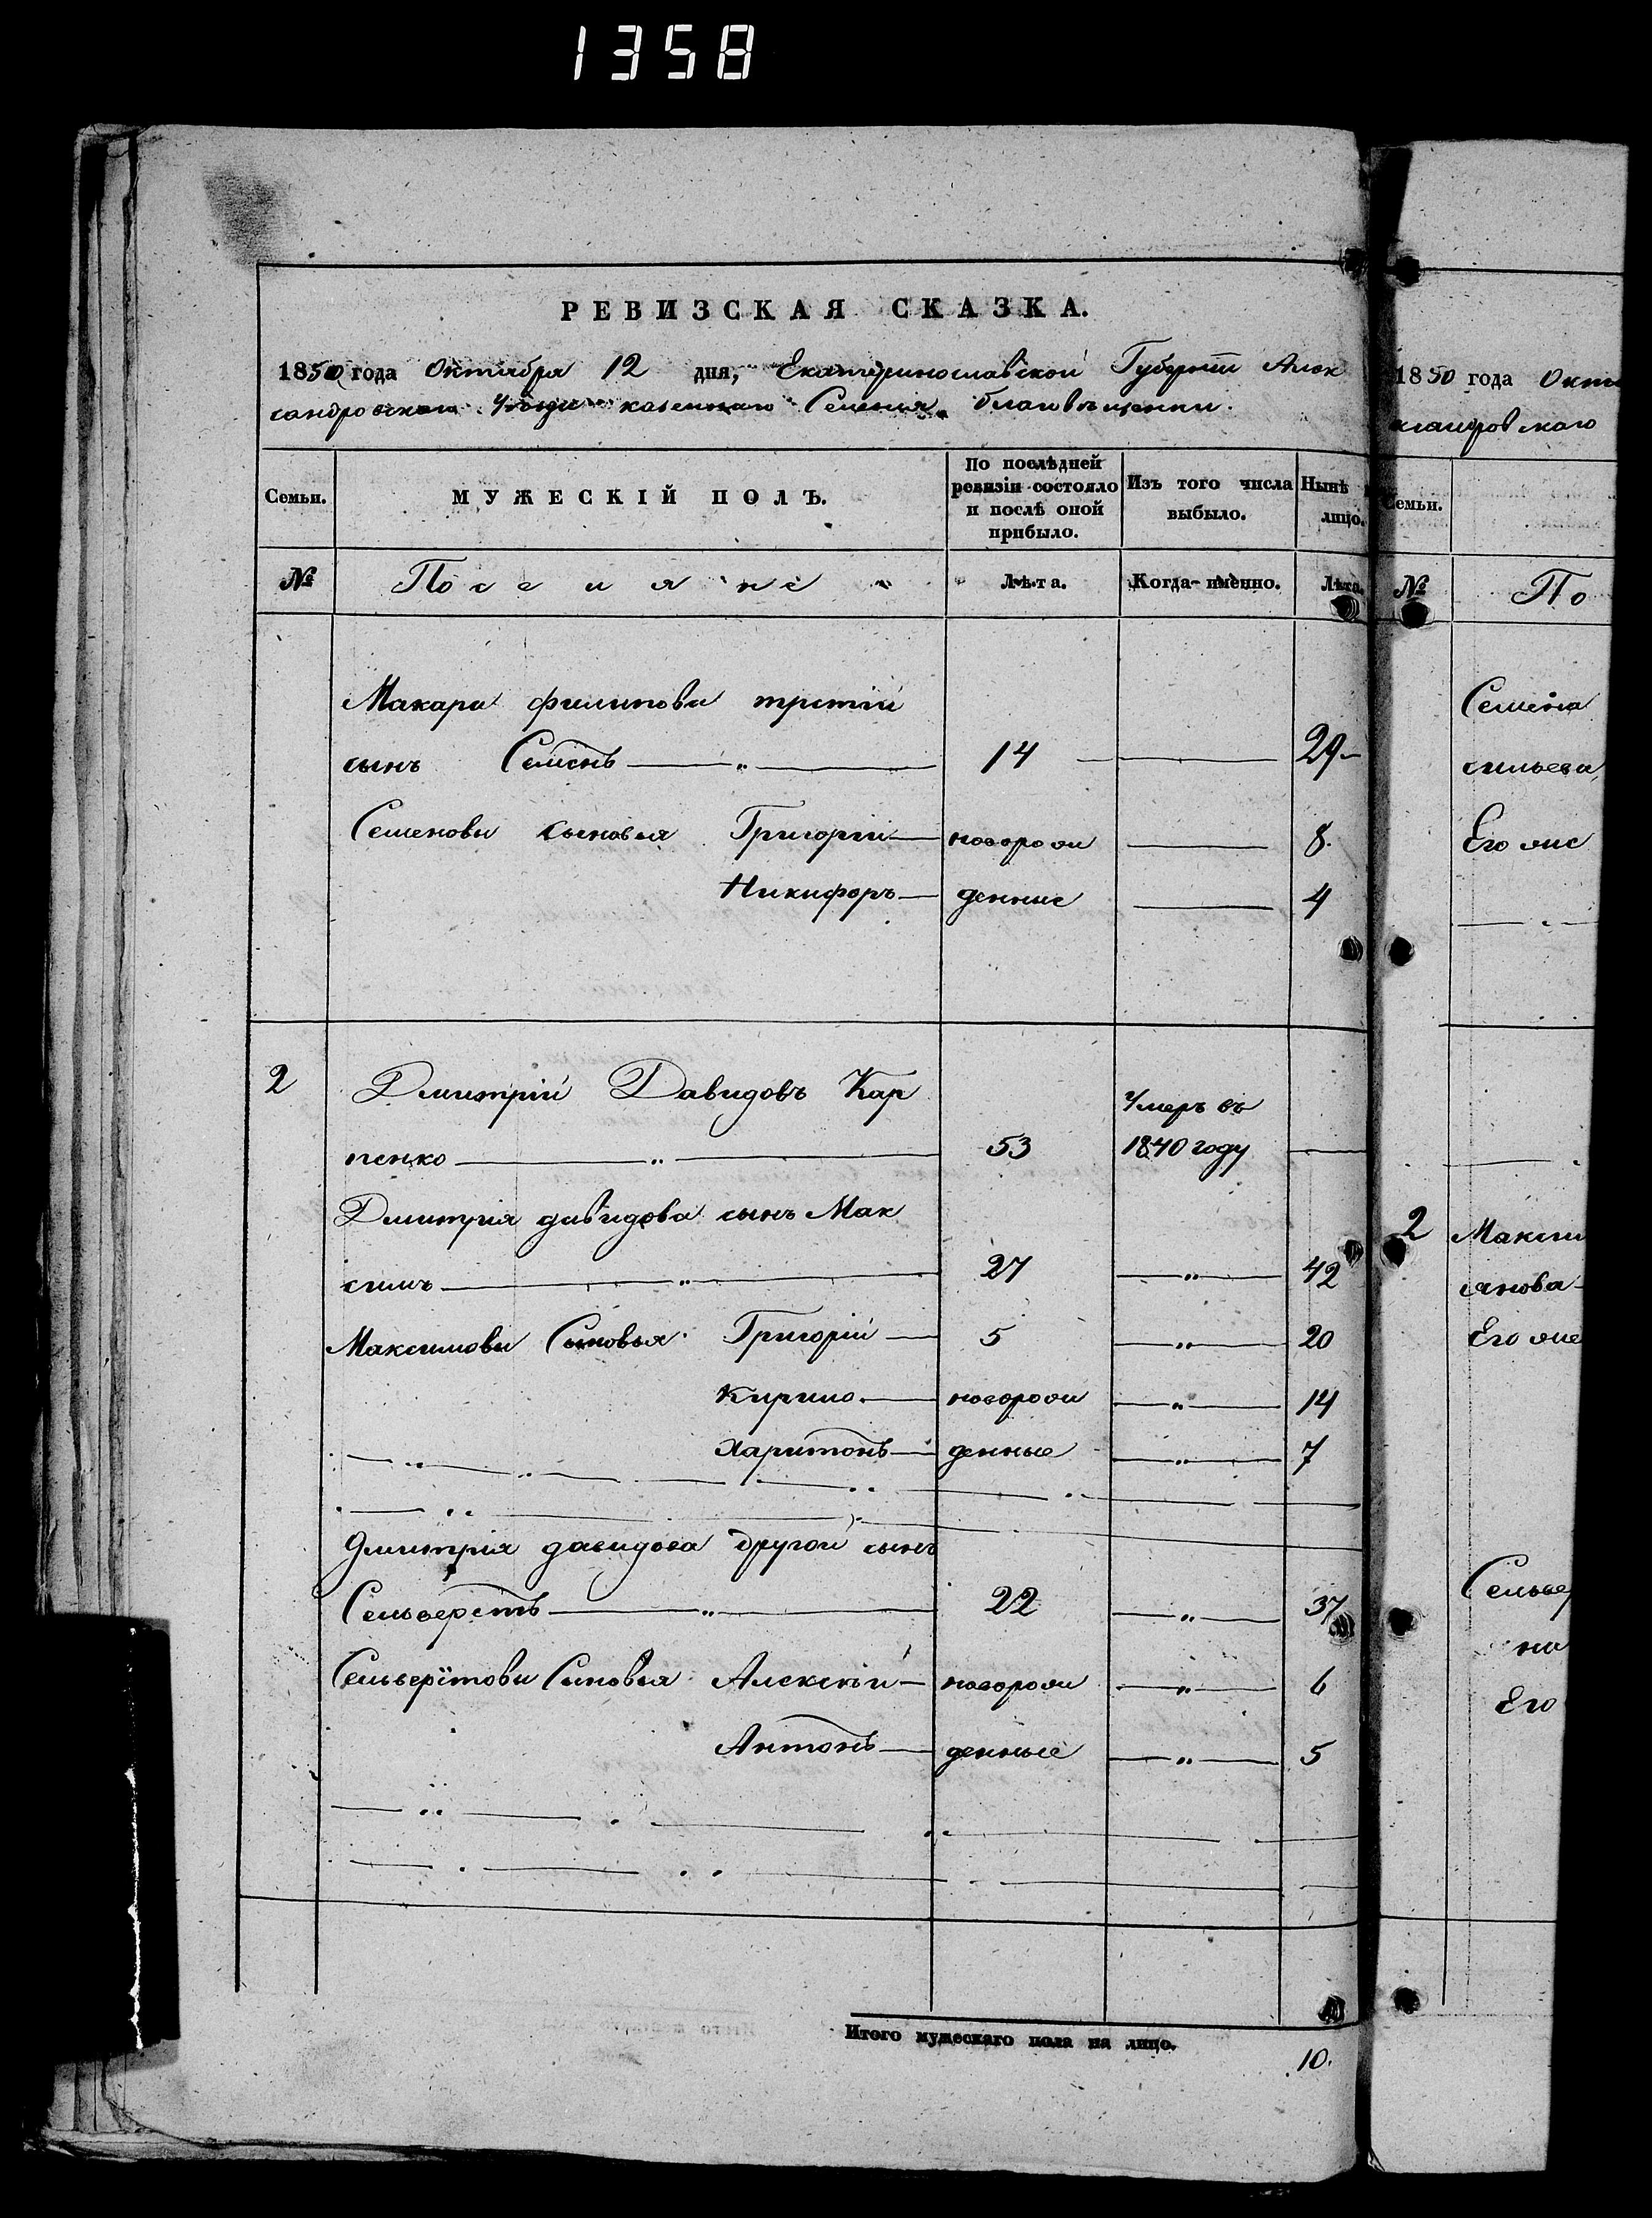 1358
РЕВИЗСКАЯ СКАЗКА.
1850 года Октября 12 дня, Екатеринославской Губернии Алек
сандровскаго Уезда казеннаго Селения благовещенки.
Семьи. МУЖЕСКІЙ ПОЛЪ. По послѣдней ревизіи состояло и послѣ оной прибыло. Изъ того числа выбыло. Нынѣ лицо.
№ Поселяне Лѣта. Когда-именно. Лѣта.
Макара филипова третій
сынъ Семенъ 14 29
Семеновы сыновья Григорій новорож 8.
Никифоръ денные 4
2 Дмитрій Давидовъ Кар Умеръ въ
пенко 53 1840 году
Дмитрія давидова сынъ Мак
симъ 27 42
Максимовы Сыновья Григорій 5 20
Кирило новорож 14
Харитонъ денные 7
Дмитрія давидова другой сынъ
Сельверстъ 22 37
Сельверстовы Сыновья Алексѣй новорож 6
Антонъ денные 5
Итого мужескаго пола на лицо.
10.
1850 года Окт
ксандровскаго
Семьи.
№ По
Семена
сильева
Его же
2 Макси
Его же
Сельвер
на
Его